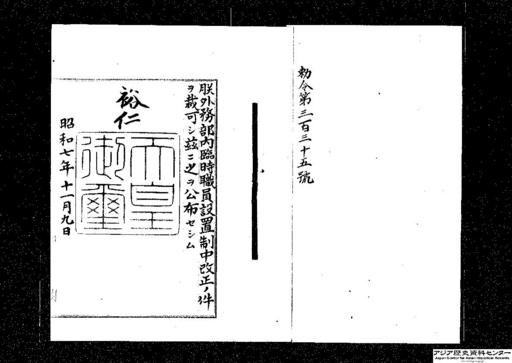 勅令第三百三十五號
朕外務部內臨時職員設置制中改正ノ件
ヲ裁可シ茲ニ之ヲ公布セシム
裕仁
天皇
御璽
昭和七年十一月九日
アジア歴史資料センター
Japan Center for Asian Historical Records